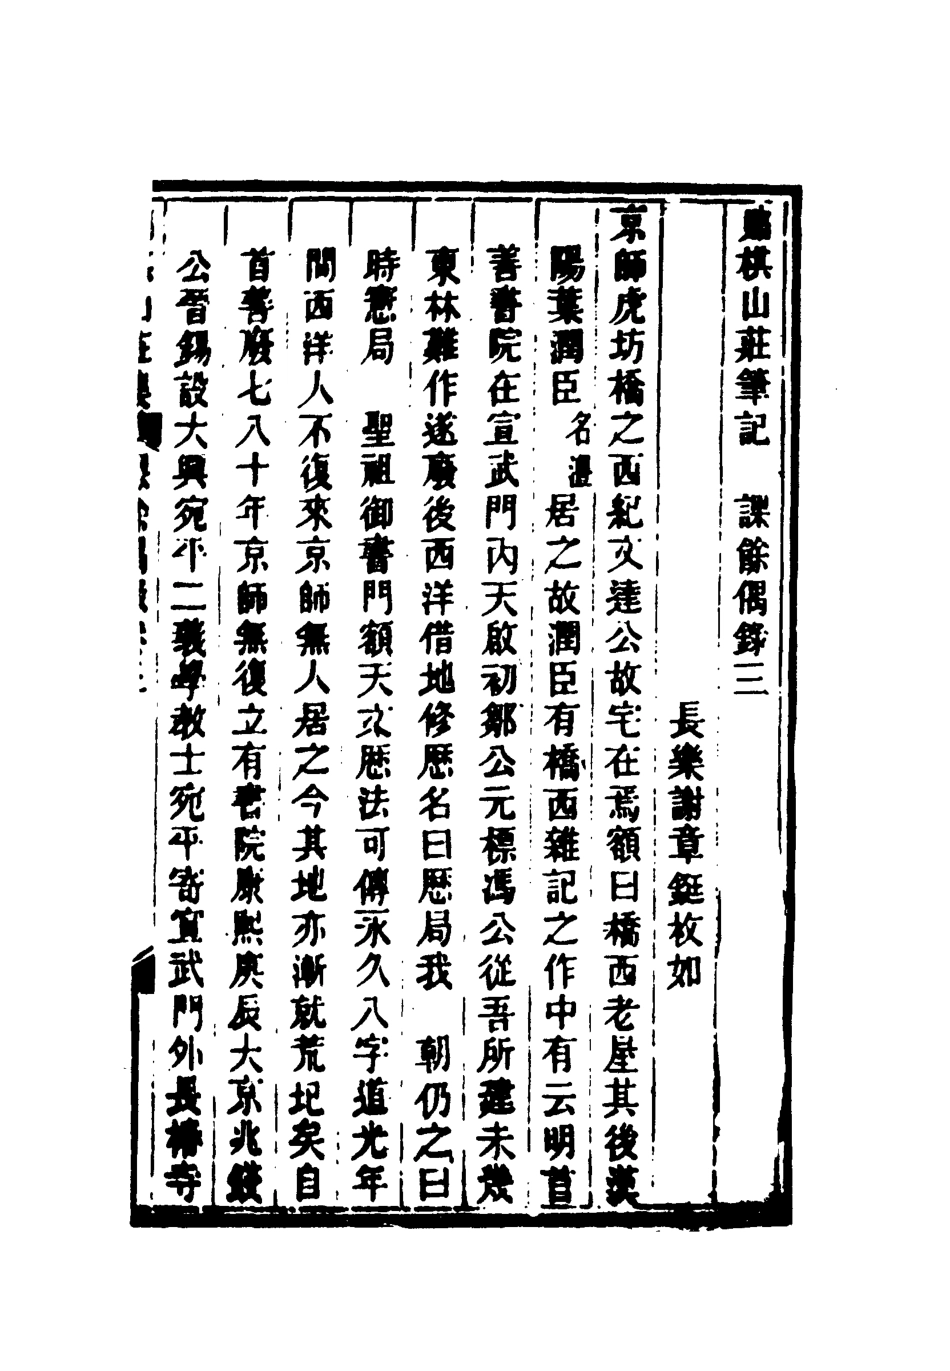 賭棋山莊筆記　課餘偶錄三
長樂謝章鋌枚如
京師虎坊橋之西紀文達公故宅在焉額曰橋西老屋其後漢
陽葉潤臣名澧居之故潤臣有橋西雜記之作中有云明首
善書院在宣武門內天啟初鄒公元標馮公從吾所建未幾
東林難作遂廢後西洋借地修歷名曰歷局我　朝仍之曰
時憲局　聖祖御書門額天文歷法可傳永久八字道光年
間西洋人不復來京師無人居之今其地亦漸就荒圮矣自
首善廢七八十年京師無復立有書院康熙庚辰大京兆錢
公晉錫設大興宛平二義學敎士宛平寄宣武門外長椿寺